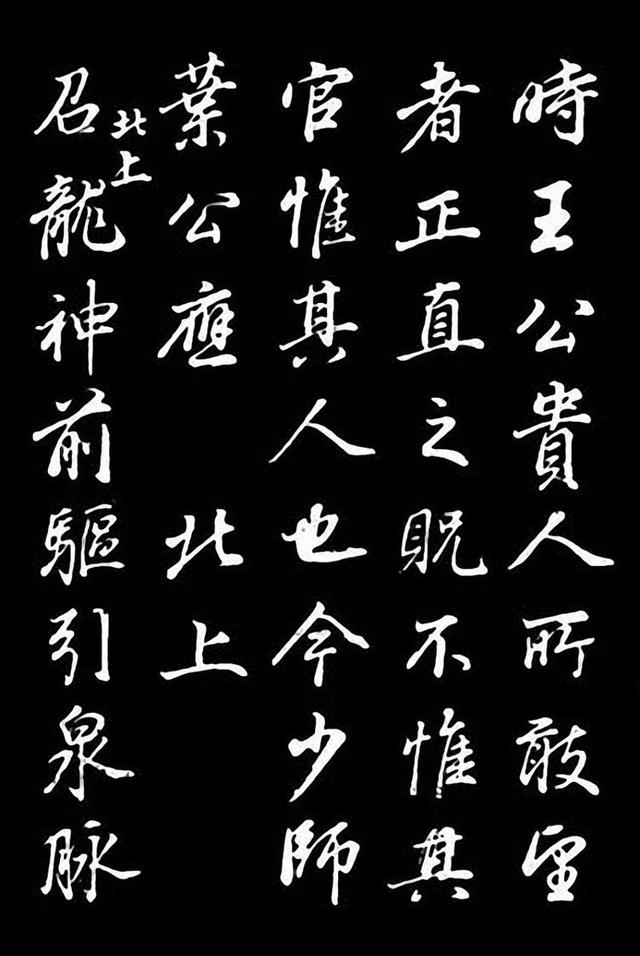 時王公貴人所敢望
者正直之貺不惟其
官惟其人也今少師
葉公應 北上
北上
召龍神前驅引泉脉